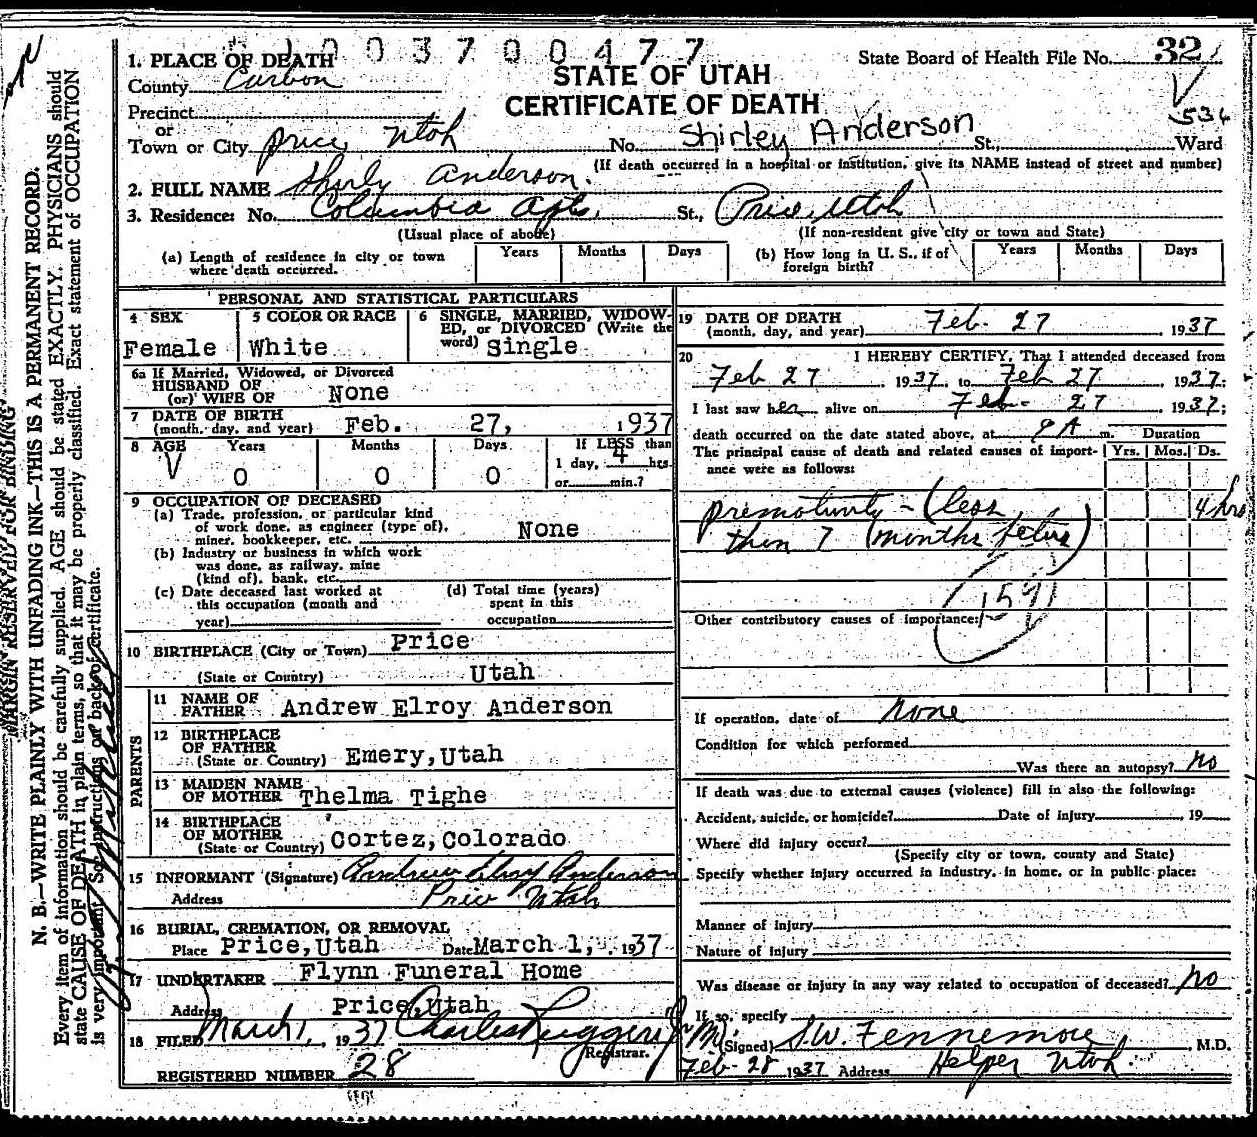 003700477
1. PLACE OF DEATH
State Board of Health File No. 32
County Carbon
STATE OF UTAH
CERTIFICATE OF DEATH
534
Precinct
or
Town or City Price Utah No. Shirley Anderson St., Ward
(If death occurred in a hospital or institution, give its NAME instead of street and number)
2. FULL NAME Shirly Anderson.
3. Residence: No. Columbia Apts. St., Price, Utah
(Usual place of abode) (If non-resident give city or town and State)
(a) Length of residence in city or town where death occurred. Years Months Days (b) How long in U. S., if of foreign birth? Years Months Days
PERSONAL AND STATISTICAL PARTICULARS
4 SEX Female
5 COLOR OR RACE White
6 SINGLE, MARRIED, WIDOW-
ED, or DIVORCED (Write the
word) Single
6a If Married, Widowed, or Divorced
HUSBAND OF
(or) WIFE OF None
7 DATE OF BIRTH
(month, day, and year) Feb. 27, 1937
8 AGE Years Months Days If LESS than
0 0 0 1 day, 4 hrs.
or min.?
9 OCCUPATION OF DECEASED
(a) Trade, profession, or particular kind
of work done, as engineer (type of),
miner, bookkeeper, etc. None
(b) Industry or business in which work
was done, as railway, mine
(kind of), bank, etc.
(c) Date deceased last worked at
this occupation (month and
year)
(d) Total time (years)
spent in this
occupation
10 BIRTHPLACE (City or Town) Price
(State or Country) Utah
PARENTS
11 NAME OF
FATHER Andrew Elroy Anderson
12 BIRTHPLACE
OF FATHER
(State or Country) Emery, Utah
13 MAIDEN NAME
OF MOTHER Thelma Tighe
14 BIRTHPLACE
OF MOTHER
(State or Country) Cortez, Colorado
15 INFORMANT (Signature) Andrew Elroy Anderson
Address Price Utah
16 BURIAL, CREMATION, OR REMOVAL
Place Price, Utah Date March 1, 1937
17 UNDERTAKER Flynn Funeral Home
Address Price, Utah
18 FILED March 1, 1937 Charles Ruggeri Jr
Registrar.
REGISTERED NUMBER 28
19 DATE OF DEATH
(month, day, and year) Feb. 27, 1937
20 I HEREBY CERTIFY, That I attended deceased from
Feb 27, 1937, to Feb 27, 1937;
I last saw her alive on Feb. 27, 1937;
death occurred on the date stated above, at 9 A m. Duration
The principal cause of death and related causes of import-
ance were as follows: Yrs. Mos. Ds.
prematurity - (less 4 hrs
than 7 months fetus)
159
Other contributory causes of importance:
If operation, date of none
Condition for which performed
Was there an autopsy? no
If death was due to external causes (violence) fill in also the following:
Accident, suicide, or homicide? Date of injury 19
Where did injury occur?
(Specify city or town, county and State)
Specify whether injury occurred in industry, in home, or in public place:
Manner of injury
Nature of injury
Was disease or injury in any way related to occupation of deceased? no
If so, specify
(Signed) S.W. Fennemore, M.D.
Feb. 28 1937 Address Helper Utah.
MARGIN RESERVED FOR BINDING
N. B.—WRITE PLAINLY WITH UNFADING INK—THIS IS A PERMANENT RECORD.
Every item of information should be carefully supplied. AGE should be stated EXACTLY. PHYSICIANS should
state CAUSE OF DEATH in plain terms, so that it may be properly classified. Exact statement of OCCUPATION
is very important. See instructions on back of certificate.